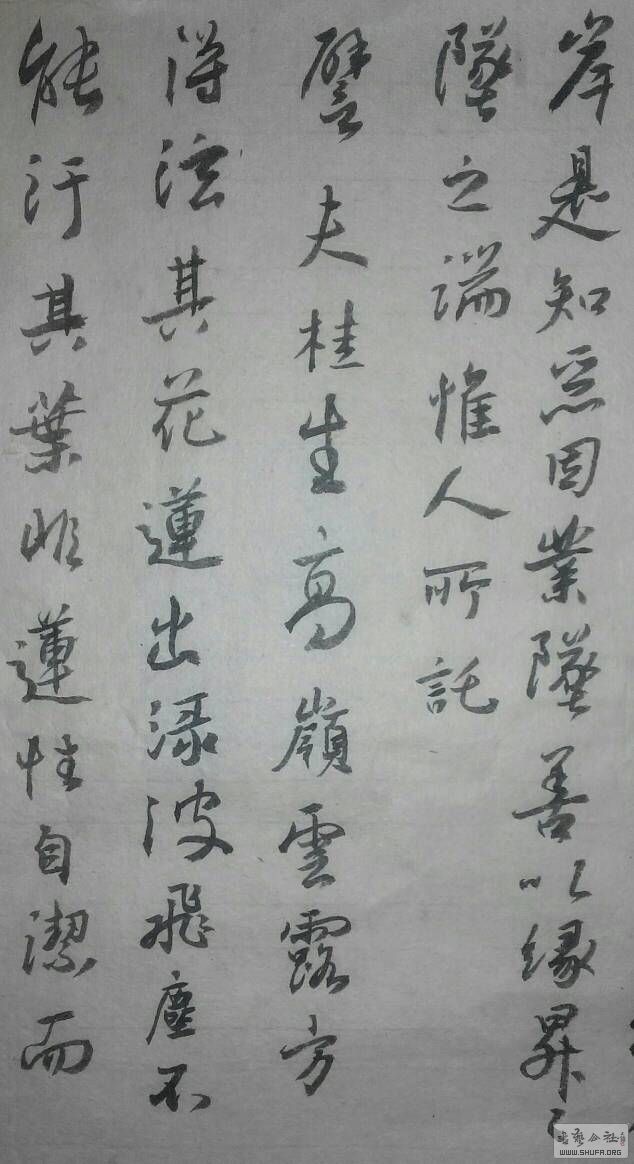 岸是知恶因業墜善以縁昇昇
墜之端惟人所託
譬夫桂生高嶺雲露方
得泫其花蓮出渌波飛塵不
能汙其葉非蓮性自潔而
WWW.SHUFA.ORG